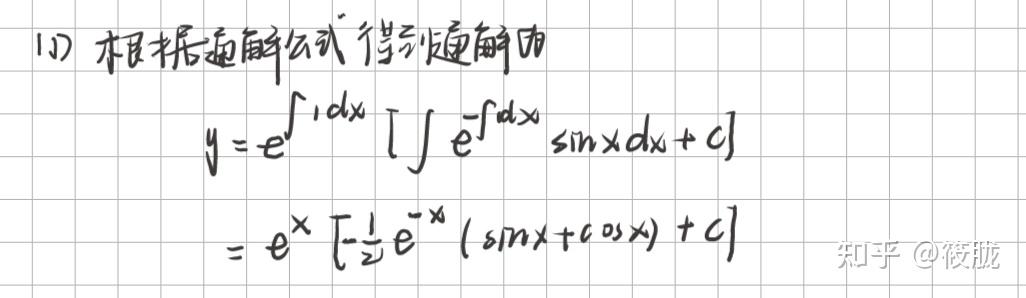 (1) 根据通解公式得到通解为
y = e^{∫1dx} [∫ e^{-∫1dx} sinx dx + C]
= e^x [-\frac{1}{2} e^{-x} (sinx + cosx) + C]
知乎 @筱胧